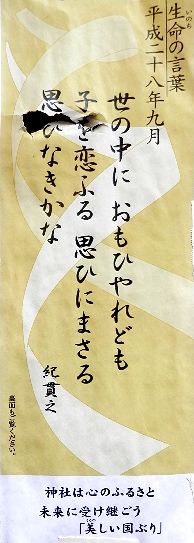 生命の言葉
いのち
平成二十八年九月
世の中に おもひやれども
子を恋ふる 思ひにまさる
思ひなきかな
紀貫之
裏面もご覧ください。
神社は心のふるさと
未来に受け継ごう
「美しい国ぶり」